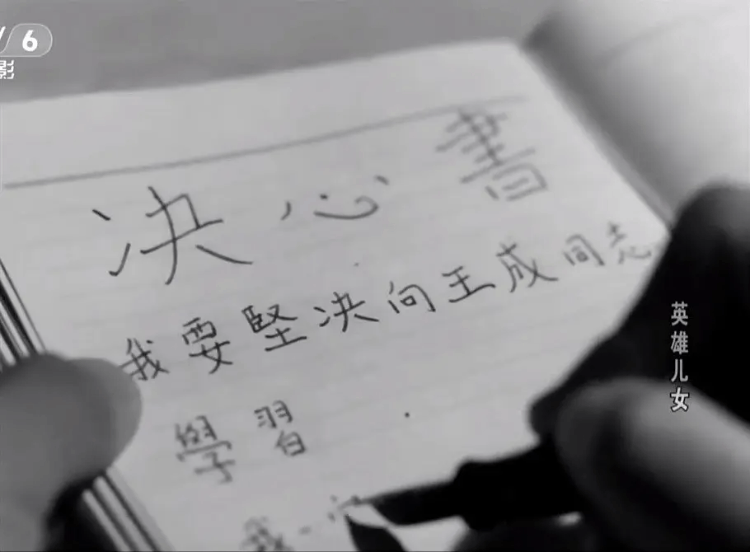 6
影
决心書
我要堅决向王成同志
學習
我一定
英雄儿女